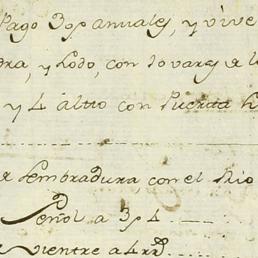 Pago 30 p.s anuales, y vive
dra, y Lodo, con 10 varas
y 4 alto con Puerta
sembradura, con el Rio
Señol a 3 p 4
Vientre a 4 rr.s